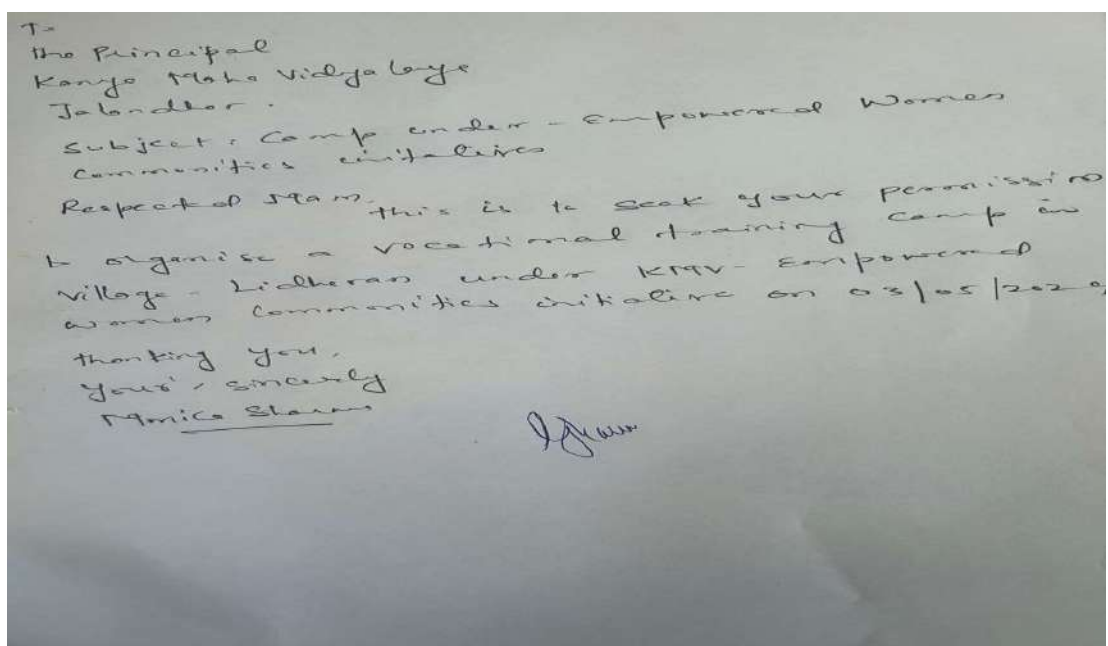 To
the Principal
Kanya Maha Vidyalaya
Jalandhar.
Subject: Camp under - Empowered Women
Communities initiatives
Respected Mam,
this is to seek your permission
to organise a vocational training camp in
village - Lidheran under KMV - Empowered
women Communities initiative on 03/05/202
thanking you,
Your's sincerly
Monica Sharma